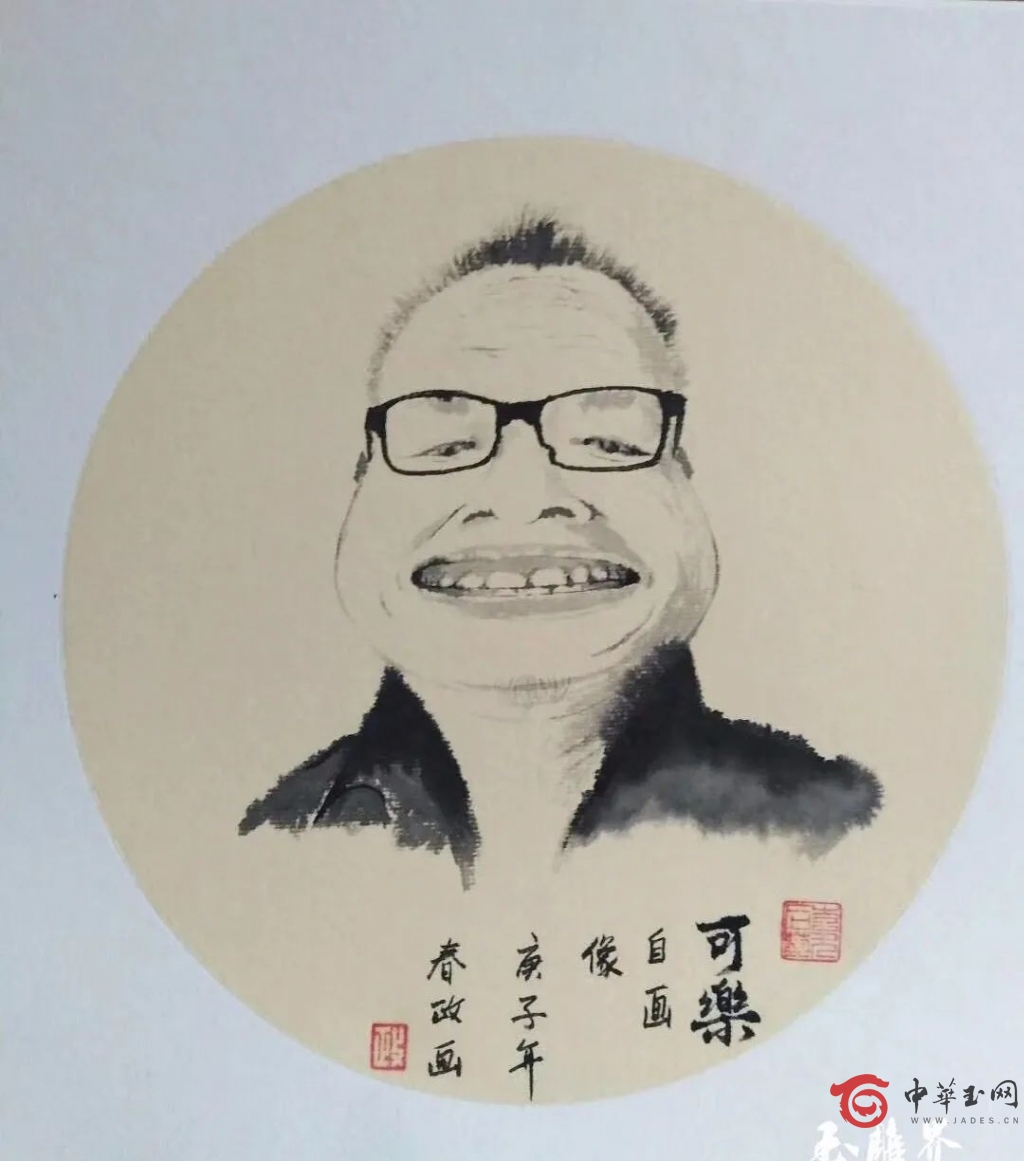 可樂
自画
像
庚子年
春政画
政
中華玉网
WWW.JADES.CN
玉雕界